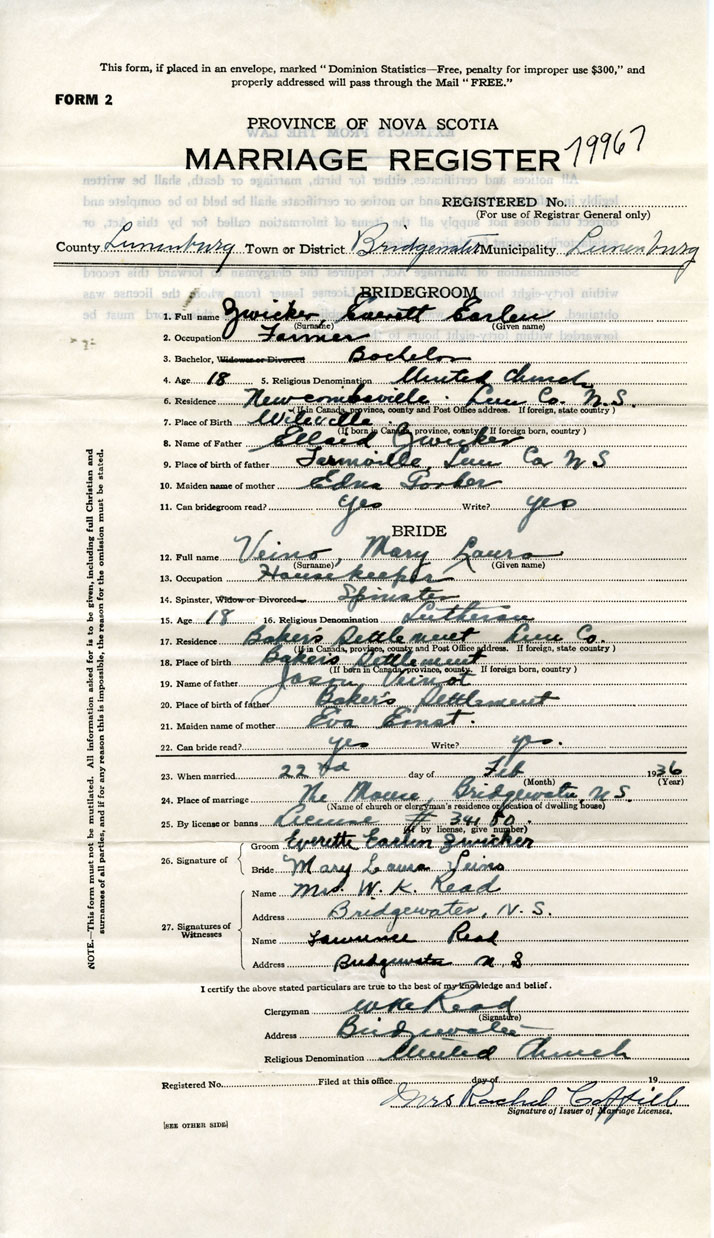 This form, if placed in an envelope, marked " Dominion Statistics—Free, penalty for improper use $300," and
properly addressed will pass through the Mail " FREE."
FORM 2
PROVINCE OF NOVA SCOTIA
MARRIAGE REGISTER 79967
REGISTERED No.
(For use of Registrar General only)
County Lunenburg Town or District Bridgewater Municipality Lunenburg
BRIDEGROOM
1. Full name Zwicker, Everett Earlen
(Surname) (Given name)
2. Occupation Farmer
3. Bachelor, Widower or Divorced Bachelor
4. Age 18 5. Religious Denomination United Church
6. Residence Newcombville. Lun Co. N.S.
(If in Canada, province, county and Post Office address. If foreign, state country )
7. Place of Birth Wileville
(If born in Canada, province, county. If foreign born, country )
8. Name of Father Zwicker
9. Place of birth of father Lun Co N S
10. Maiden name of mother Edna
11. Can bridegroom read? yes Write? yes
BRIDE
12. Full name Veino, Mary Laura
(Surname) (Given name)
13. Occupation Housekeeper
14. Spinster, Widow or Divorced Spinster
15. Age 18 16. Religious Denomination Lutheran
17. Residence Baker's Settlement Lun Co.
(If in Canada, province, county and Post Office address. If foreign, state country )
18. Place of birth Baker's Settlement
(If born in Canada, province, county. If foreign born, country )
19. Name of father Jason Veinot
20. Place of birth of father Baker's Settlement
21. Maiden name of mother Eva Ernst.
22. Can bride read? yes Write? yes.
23. When married 22nd day of Feb 1936
(Month) (Year)
24. Place of marriage The Manse, Bridgewater, N.S.
(Name of church or clergyman's residence or location of dwelling house)
25. By license or banns License # 34180.
(If by license, give number)
26. Signature of
Groom Everette Earlin Zwicker
Bride Mary Laura Veino
27. Signatures of
Witnesses
Name Mrs. W. K. Read
Address Bridgewater, N.S.
Name Lawrence Read
Address Bridgewater N S
I certify the above stated particulars are true to the best of my knowledge and belief.
Clergyman Read
(Signature)
Address Bridgewater
Religious Denomination United Church
Registered No. Filed at this office day of 19
Mrs Rachel
Signature of Issuer of Marriage Licenses.
[SEE OTHER SIDE]
NOTE.—This form must not be mutilated. All information asked for is to be given, including full Christian and
surnames of all parties, and if for any reason this is impossible, the reason for the omission must be stated.